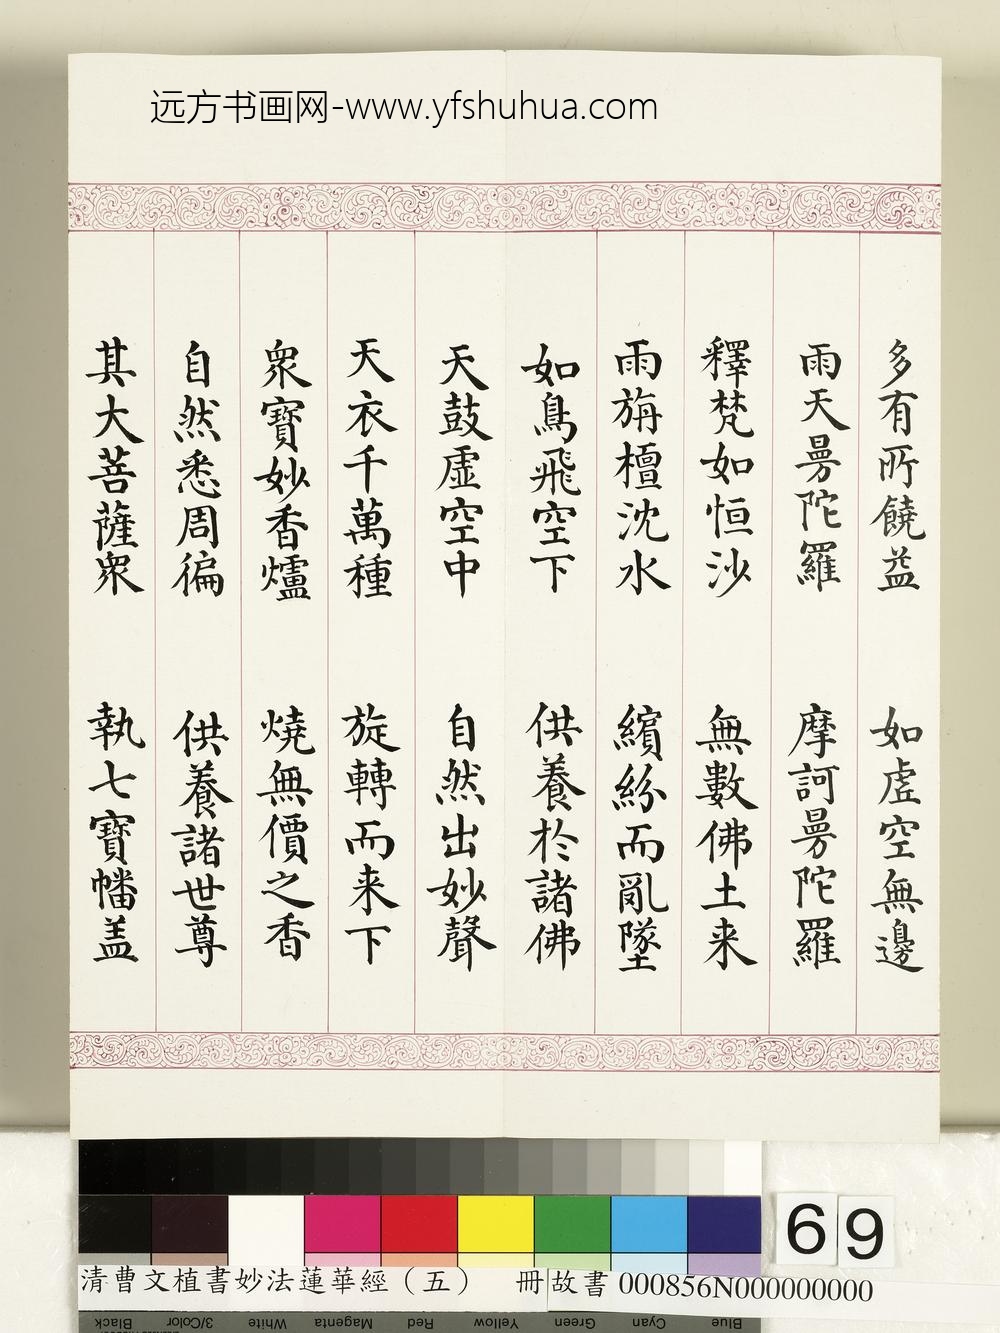 远方书画网-www.yfshuhua.com
多有所饒益 如虛空無邊
雨天曼陀羅 摩訶曼陀羅
釋梵如恒沙 無數佛土来
雨旃檀沈水 繽紛而亂墜
如鳥飛空下 供養於諸佛
天鼓虛空中 自然出妙聲
天衣千萬種 旋轉而来下
眾寶妙香爐 燒無價之香
自然悉周徧 供養諸世尊
其大菩薩眾 執七寶幡盖
69
清曹文植書妙法蓮華經（五） 冊 故書 000856N000000000
Black 3/Color White Magenta Red Yellow Green Cyan Blue